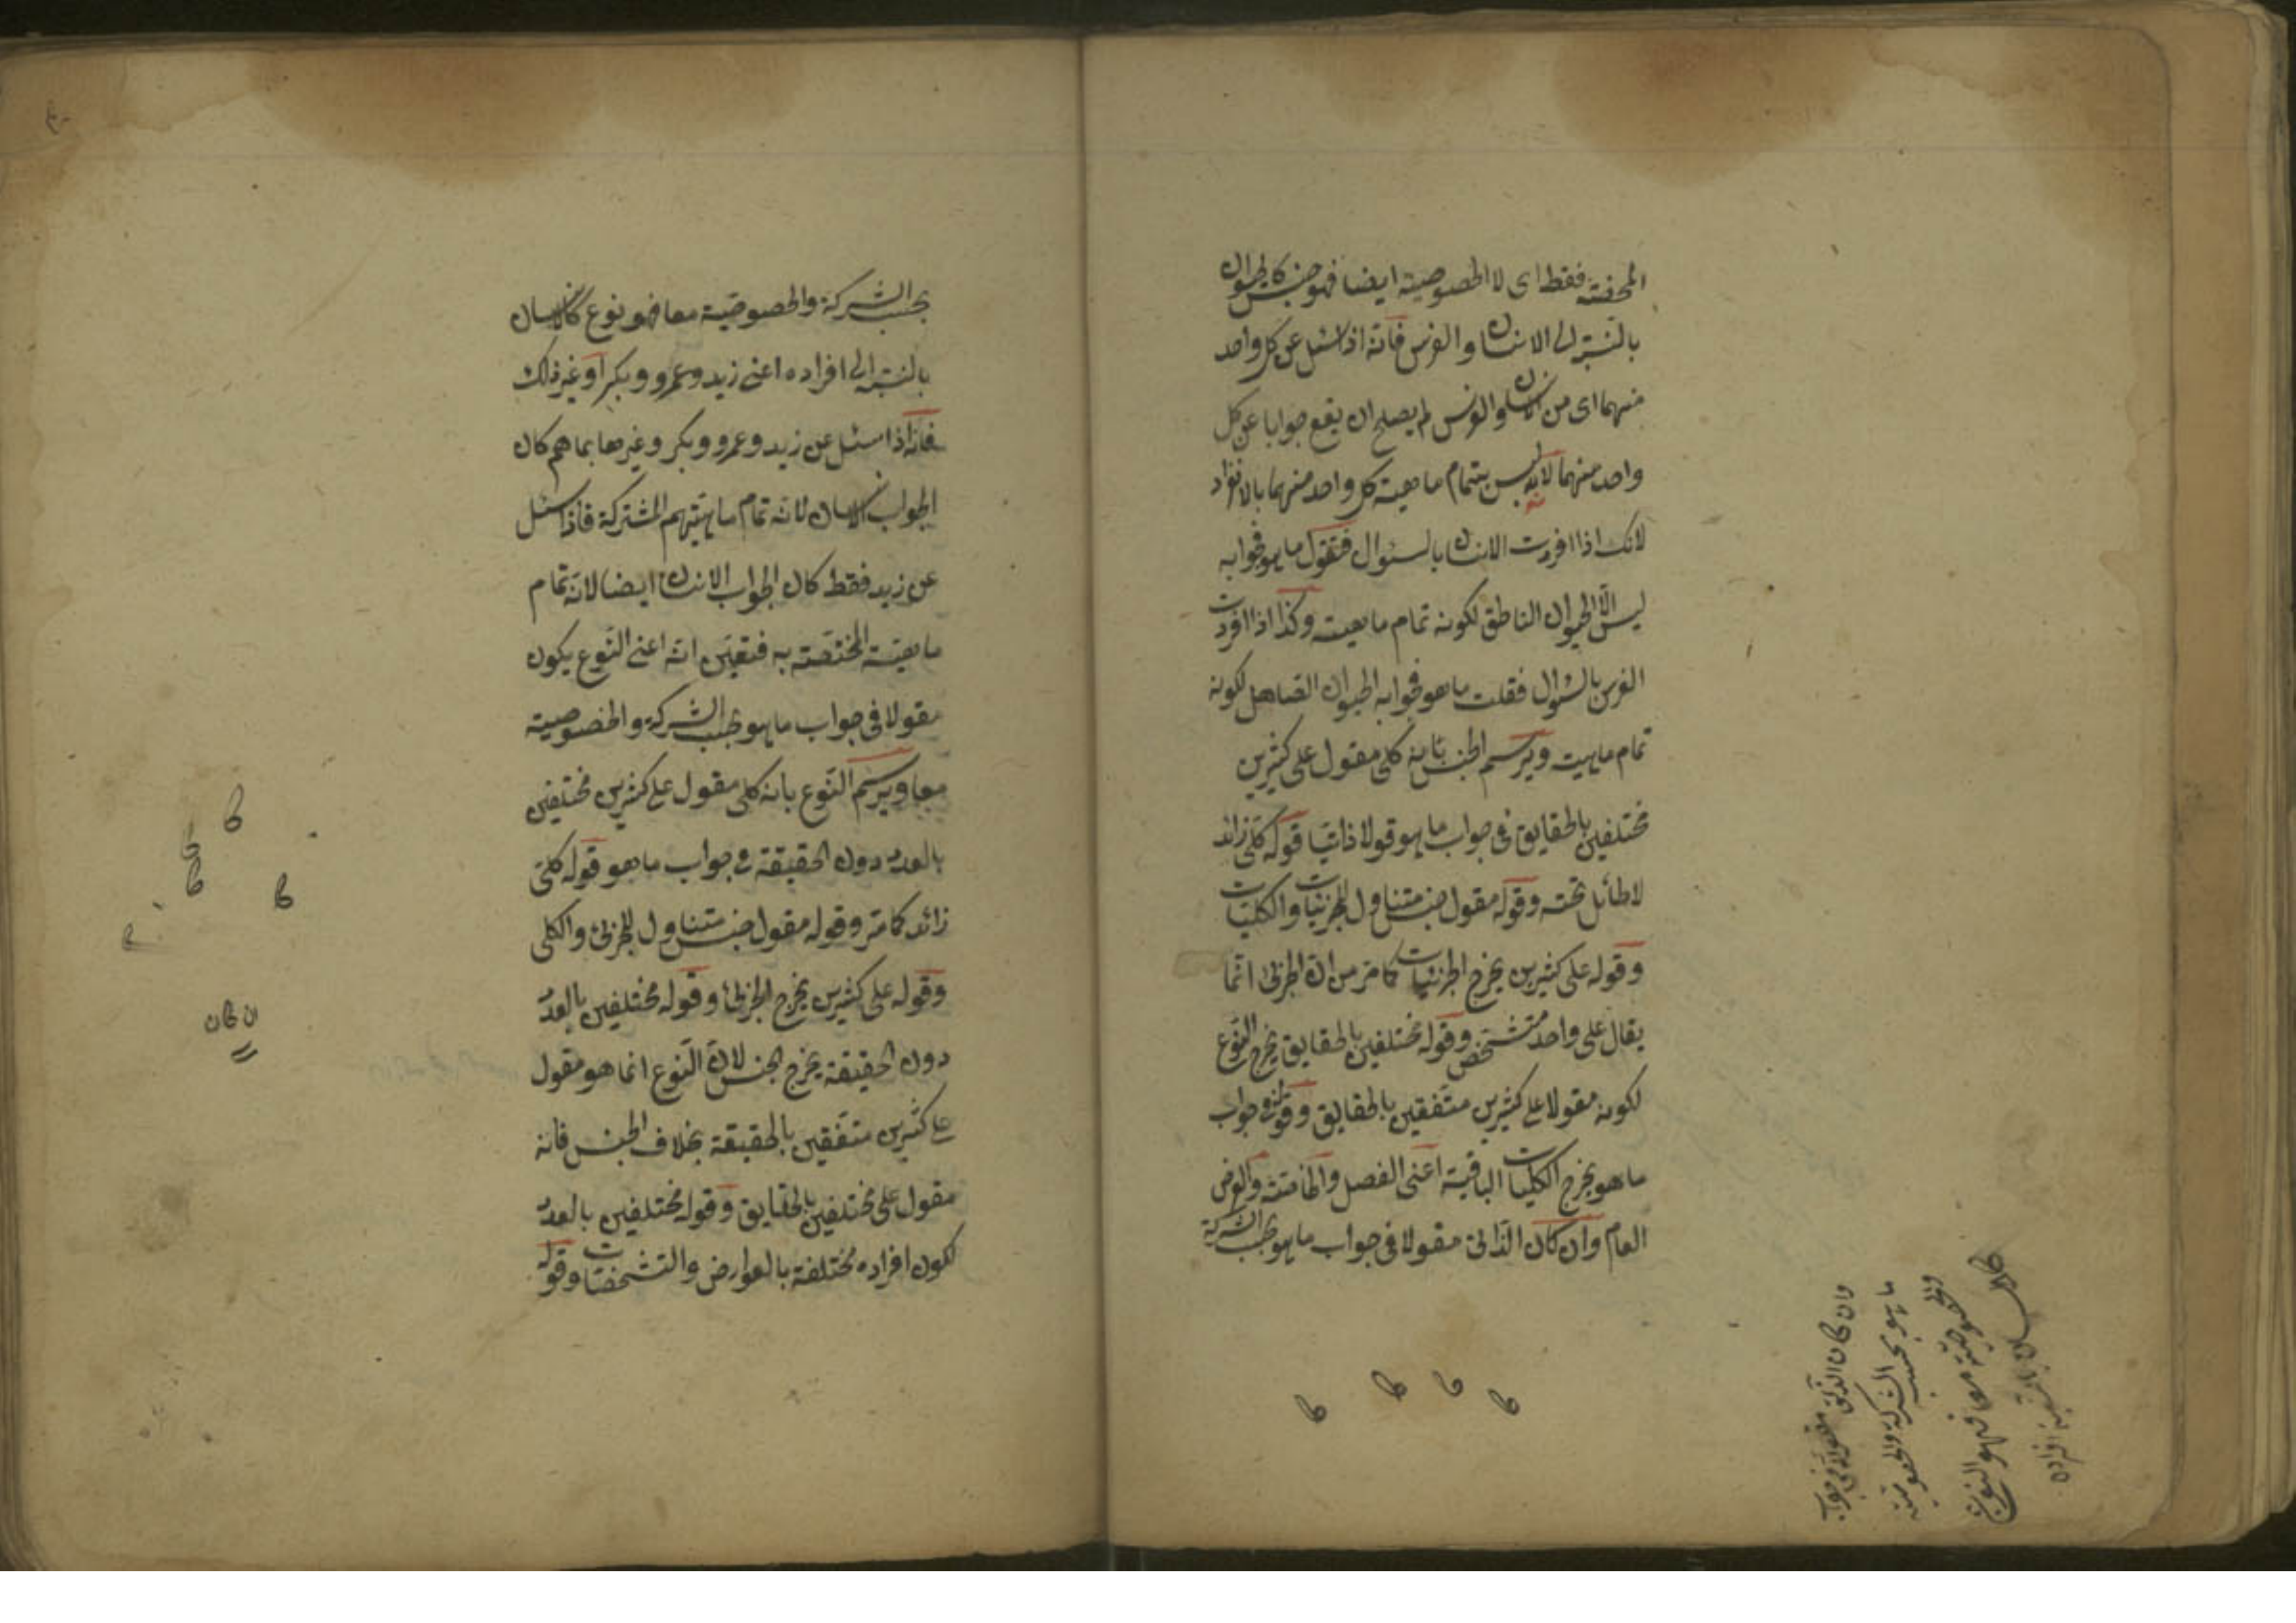 المحضة فقط اى لا الخصوصية ايضا فهو جنس كالحيوان
بالنسبة الى الانسان والفرس فانه اذا سئل عن كل واحد
منهما اى من الانسان والفرس لم يصلح ان يقع جوابا عن كل
واحد منهما لانه ليس بتمام ماهية كل واحد منهما بالانفراد
لانك اذا افردت الانسان بالسئوال فتقول ما هو فجوابه
ليس الا الحيوان الناطق لكونه تمام ماهيته وكذا اذا افردت
الفرس بالسئوال فقلت ما هو فجوابه الحيوان الصاهل لكونه
تمام ماهيته ويرسم الجنس بانه كلى مقول على كثيرين
مختلفين بالحقايق فى جواب ما هو قولا ذاتيا قوله كلى زائد
لا طائل تحته وقوله مقول جنس متناول للجزئيات والكليات
وقوله على كثيرين يخرج الجزئيات كما مر من ان الجزئى انما
يقال على واحد متشخص وقوله مختلفين بالحقايق يخرج النوع
لكونه مقولا على كثيرين متفقين بالحقايق وقوله فى جواب
ما هو يخرج الكليات الباقية اعنى الفصل والخاصة والعرض
العام وان كان الذاتى مقولا فى جواب ما هو بحسب الشركة
وان كان الذاتى مقولا فى جواب
ما هو بحسب الشركة والخصوصية
والخصوصية معا فهو النوع
كالانسان بالنسبة افراده
بحسب الشركة والخصوصية معا فهو نوع كالانسان
بالنسبة الى افراده اعنى زيد وعمرو وبكر او غير ذلك
فانه اذا سئل عن زيد وعمرو وبكر وغيرها بما هم كان
الجواب الانسان لانه تمام ماهيتهم المشتركة فاذا سئل
عن زيد فقط كان الجواب الانسان ايضا لانه تمام
ماهيته المختصة به فتعين انه اعنى النوع يكون
مقولا فى جواب ما هو بحسب الشركة والخصوصية
معا ويرسم النوع بانه كلى مقول على كثيرين مختلفين
بالعدد دون الحقيقة فى جواب ما هو قوله كلى
زائد كما مر وقوله مقول جنس متناول للجزئى والكلى
وقوله على كثيرين يخرج الجزئى وقوله مختلفين بالعدد
دون الحقيقة يخرج الجنس لان النوع انما هو مقول
على كثيرين متفقين بالحقيقة بخلاف الجنس فانه
مقول على مختلفين بالحقايق وقوله مختلفين بالعدد
لكون افراده مختلفة بالعوارض والتشخصات وقوله
ان كان